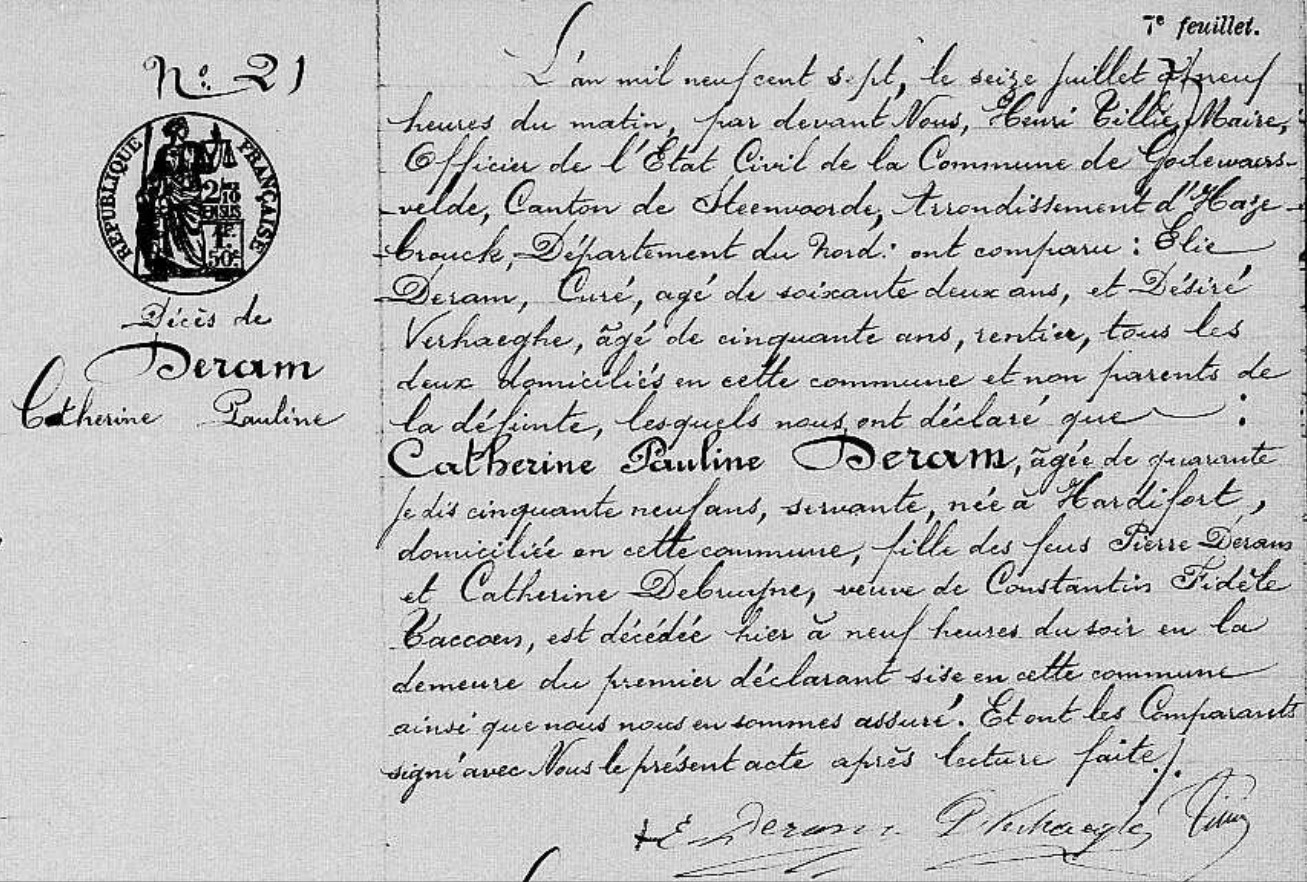 7e feuillet.
No. 21
REPUBLIQUE FRANÇAISE
2/10
EN SUS
1F.
50c
Décès de
Deram
Catherine Pauline
L'an mil neuf cent sept, le seize Juillet à neuf
heures du matin, par devant Nous, Henri Tillie, Maire,
Officier de l'Etat Civil de la Commune de Godewaers-
-velde, Canton de Steenvoorde, Arrondissement d'Haze-
brouck, Département du Nord: ont comparu : Elie
Deram, Curé, agé de soixante deux ans, et Désiré
Verhaeghe, âgé de cinquante ans, rentier, tous les
deux domiciliés en cette commune et non parents de
la défunte, lesquels nous ont déclaré que :
Catherine Pauline Deram, âgée de quarante
je dis cinquante neuf ans, servante, née à Hardifort,
domiciliée en cette commune, fille des feus Pierre Deram
et Catherine Debruyne, veuve de Constantin Fidèle
Taccoen, est décédée hier à neuf heures du soir en la
demeure du premier déclarant sise en cette commune
ainsi que nous nous en sommes assuré. Et ont les Comparants
signé avec Nous le présent acte après lecture faite./.
E Deram D Verhaeghe Tillie